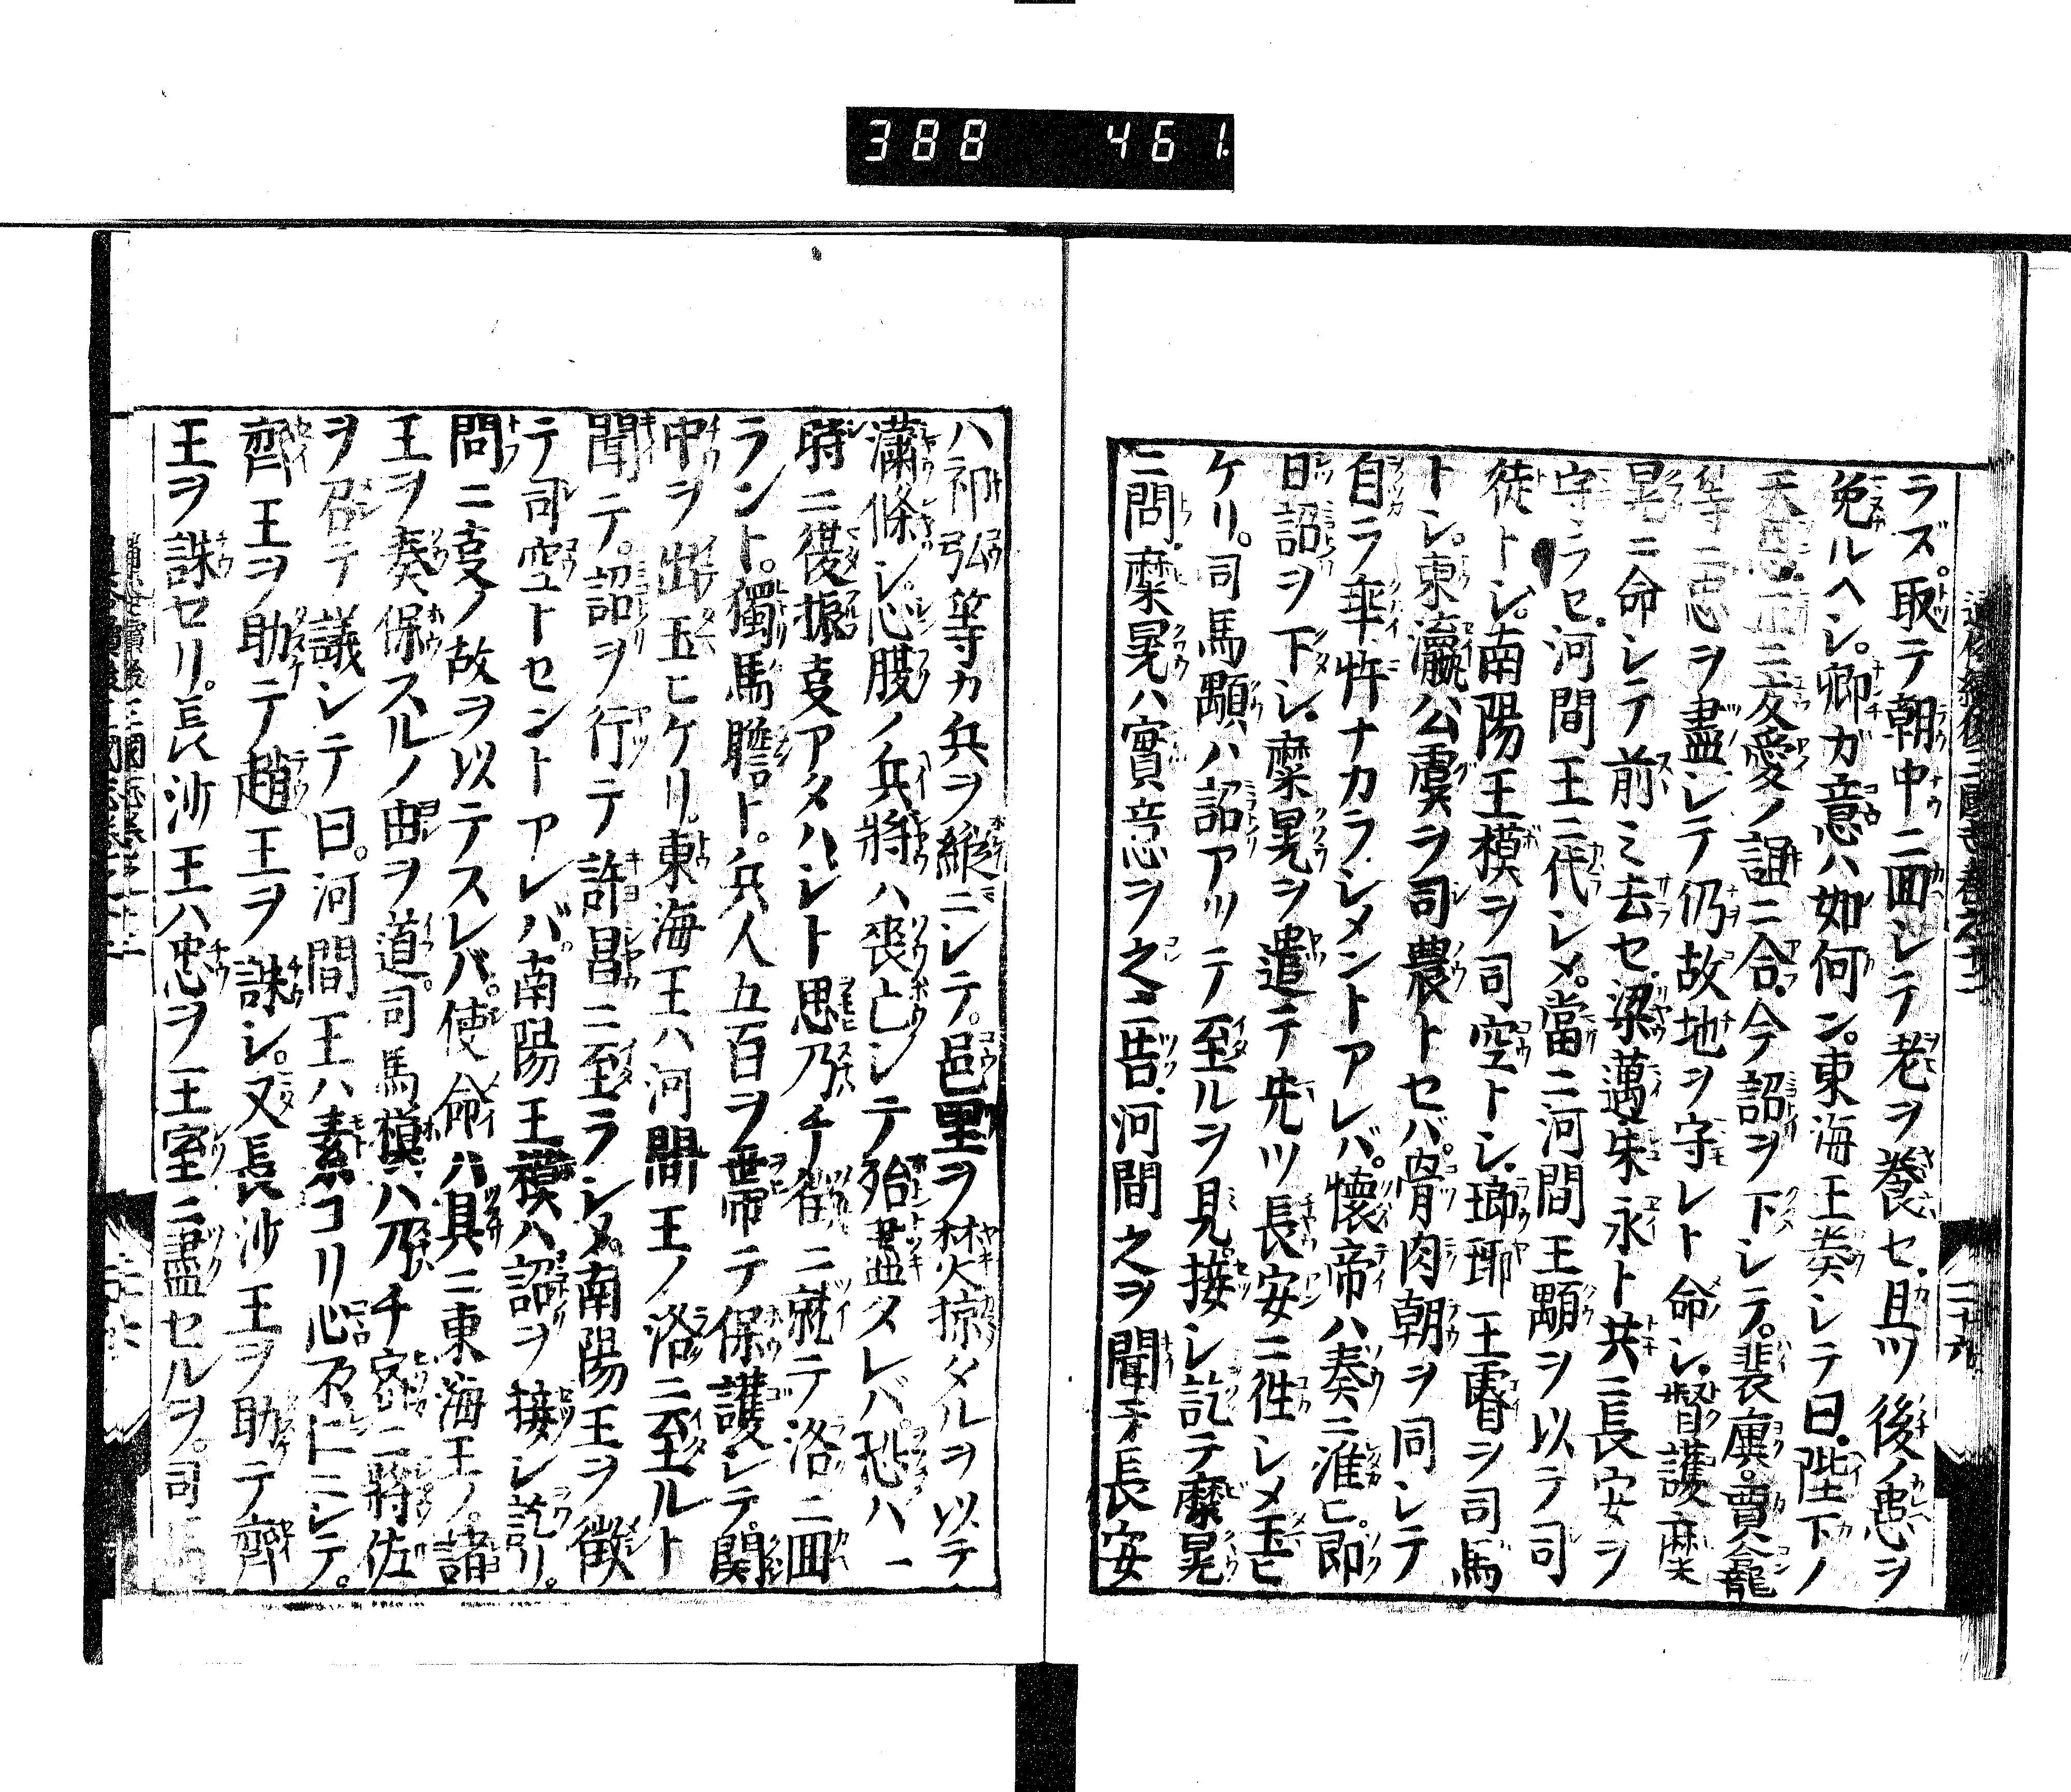 388 461
ラズ。取テ朝中ニ回シテ老ヲ養セ。且ツ後ノ患ヲ
免ルヘシ。卿ガ意ハ如何ン。東海王奏シテ曰。陛下ノ
天恩正ニ友愛ノ誼ニ合。今詔ヲ下シテ。裴廙。賈龕
等ニ忠ヲ盡シテ仍故地ヲ守レト命シ。督護麋
晃ニ命シテ前ミ去セ。梁邁朱永ト共ニ長安ヲ
守ラセ。河間王ニ代シメ。當ニ河間王顒ヲ以テ司
徒トシ。南陽王模ヲ司空トシ。瑯琊王睿ヲ司馬
トシ。東瀛公虞ヲ司農トセバ。骨肉朝ヲ同シテ
自ラ乖忤ナカラシメントアレバ。懐帝ハ奏ニ准ヒ。即
日詔ヲ下シ。麋晃ヲ遣テ先ツ長安ニ徃シメ玉ヒ
ケリ。司馬顒ハ詔アツテ至ルヲ見。接シ訖テ麋晃
ニ問。麋晃ハ實意ヲ之ニ告。河間之ヲ聞テ長安
ハ祁弘等カ兵ヲ縦ニシテ。邑里ヲ焚掠タルヲ以テ
瀟條シ。心腹ノ兵將ハ喪亡シテ殆盡タレバ。恐ハ一
時ニ復振㕝アタハシト思乃チ徴ニ就テ洛ニ回
ラント。獨馬瞻ト。兵人五百ヲ帯テ保護シテ。関
中ヲ出玉ヒケリ。東海王ハ河間王ノ洛ニ至ルト
聞テ。詔ヲ行テ許昌ニ至ラシメ。南陽王ヲ徴
テ司空トセントアレバ。南陽王模ハ詔ヲ接シ訖リ。
問ニ㕝ノ故ヲ以テスレバ。使命ハ具ニ東海王ノ。諸
王ヲ奏保スルノ由ヲ道。司馬模ハ乃チ密ニ將佐
ヲ召テ議シテ曰。河間王ハ素コリ心不仁ニシテ。
齊王ヲ助テ趙王ヲ誅シ。又長沙王ヲ助テ齊
王ヲ誅セリ。長沙王ハ忠ヲ王室ニ盡セルヲ。司馬